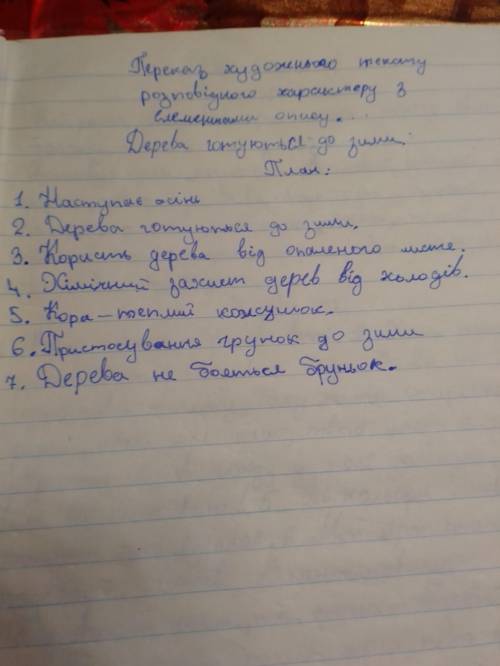 Переказ художнього тексту
розповідного характеру з
елементами опису...
Дерева готуються до зими.
План:
1. Наступає осінь
2. Дерева готуються до зими.
3. Користь дерева від опаленого листе.
4. Хімічний захист дерев від холодів.
5. Кора – теплий кожушок.
6. Пристосування грунок до зими
7. Дерева не бояться бруньок.